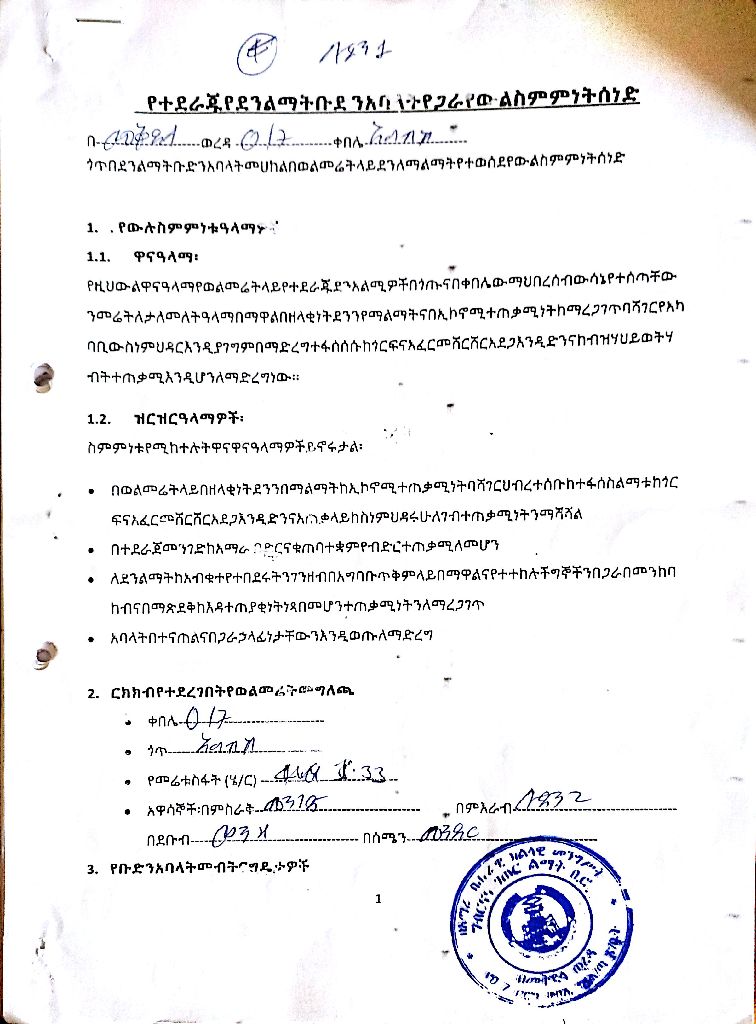 የተደራጁየደንልማትቡድንአባላትየጋራየውልስምምነትሰነድ
በ ወረዳ 017 ቀበሌ
ጎጥበደንልማትቡድንአባላትመሀከልበወልመሬትላይደንለማልማትየተወሰደየውልስምምነትሰነድ
1. .የውሉስምምነቱዓላማ፡
1.1. ዋናዓላማ፡
የዚህውልዋናዓላማየወልመሬትላይየተደራጁደንአልሚዎችበጎጡናበቀበሌውማህበረሰብውሳኔየተሰጣቸው
ንመሬትለታለመለትዓላማበማዋልበዘላቂነትደንንየማልማትናበኢኮኖሚተጠቃሚነትከማረጋገጥባሻገርየአካ
ባቢውስነምህዳርእንዲያገግምበማድረግተፋሰሰሱከጎርፍናአፈርመሸርሸርአደጋእንዲድንናከብዝሃህይወትሃ
ብትተጠቃሚእንዲሆንለማድረግነው።
1.2. ዝርዝርዓላማዎች፡
ስምምነቱየሚከተሉትዋናዋናዓላማዎችይኖሩታል፡
• በወልመሬትላይበዘላቂነትደንንበማልማትከኢኮኖሚተጠቃሚነትባሻገርህብረተሰቡከተፋሰስልማቱከጎር
ፍናአፈርመሸርሸርአደጋእንዲድንናአጠቃላይከስነምህዳሩሁለገብተጠቃሚነትንማሻሻል
• በተደራጀመንገድከአማራ ብድርናቁጠባተቋምየብድርተጠቃሚለመሆን
• ለደንልማትከአብቁተየተበደሩትንገንዘብበአግባቡጥቅምላይበማዋልናየተተከሉችግኞችንበጋራበመንከባ
ከብናበማጽደቅከእዳተጠያቂነትነጻበመሆንተጠቃሚነትንለማረጋገጥ
• አባላትበተናጠልናበጋራኃላፊነታቸውንእንዲወጡለማድረግ
2. ርክክብየተደረገበትየወልመሬትመግለጫ
• ቀበሌ 017
• ጎጥ
• የመሬቱስፋት (ሄ/ር) 33
• አዋሳኞች፡በምስራቅ መንገድ በምእራብ
በደቡብ በሰሜን
3. የቡድንአባላትመብትናግዴታዎች
1
በአማራ ብሔራዊ ክልላዊ መንግሥት
ግብርናና ገጠር ልማት ቢሮ